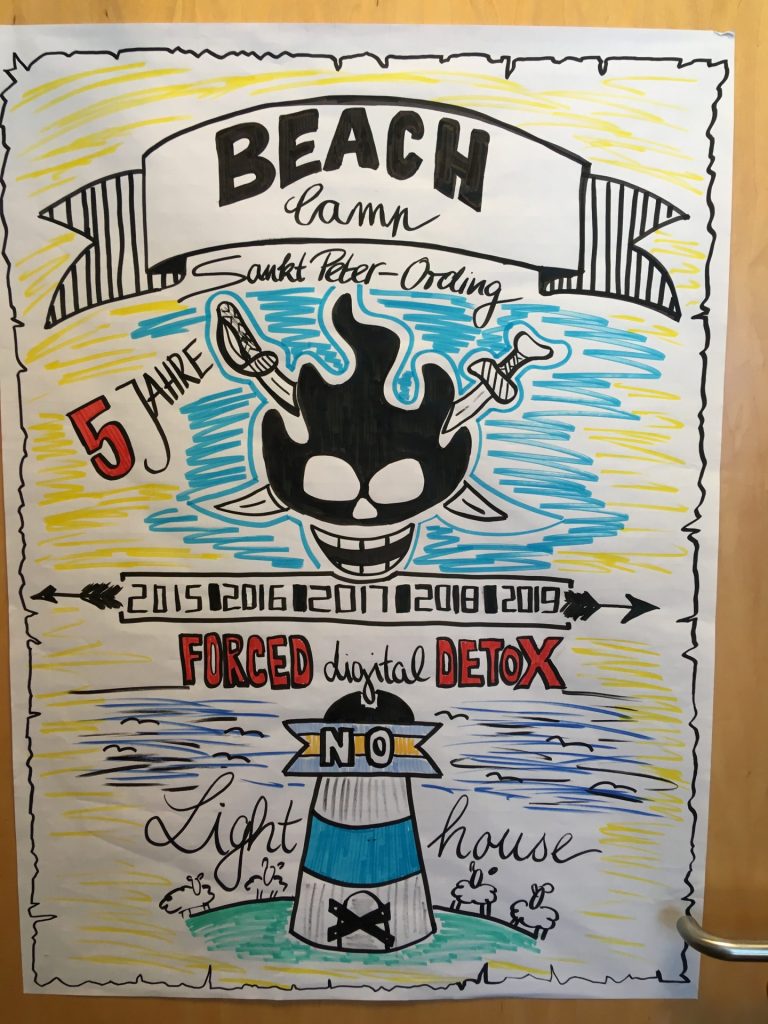 BEACH
Camp
Sankt Peter-Ording
5 JAHRE
2015 2016 2017 2018 2019
FORCED digital DETOX
NO
Light house